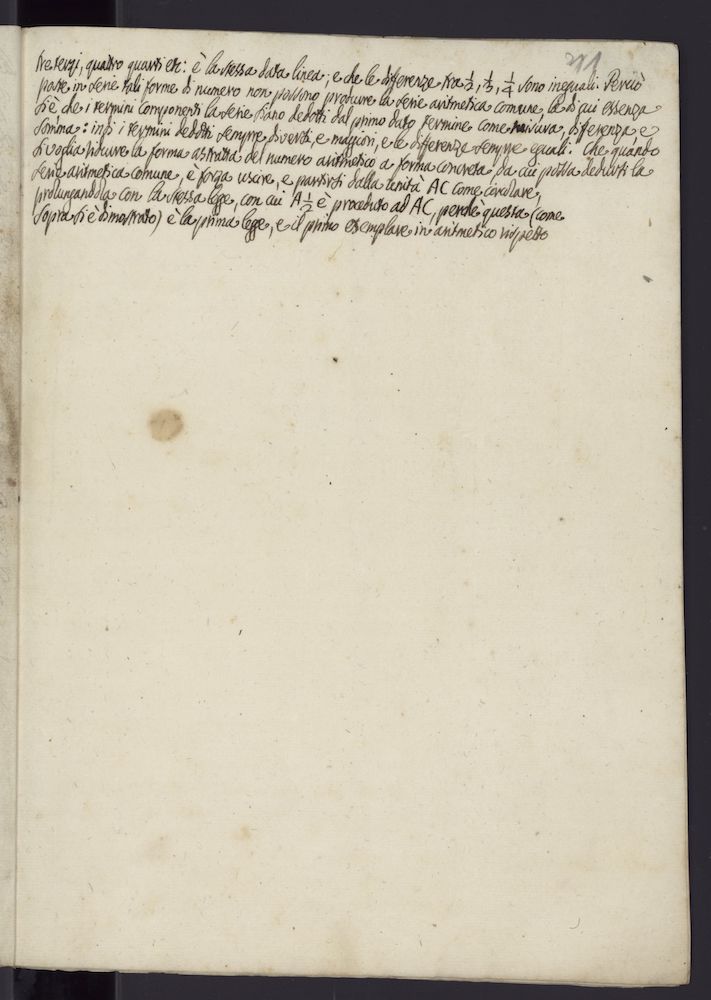 tre terzi, quattro quarti etc: è la stessa data linea; e che le differenze tra ½, ⅓, ¼ sono ineguali. Perciò
poste in serie tali forme di numero non possono produrre la serie aritmetica comune, la di cui essenza
si è che i termini componenti la serie siano dedotti dal primo dato termine come misura, differenza e
somma: indi i termini dedotti sempre diversi, e maggiori, e le differenze sempre eguali. Che quando
si voglia ridurre la forma astratta del numero aritmetico a forma concreta da cui possa dedursi la
serie aritmetica comune, è forza uscire, e partirsi dalla unità AC come cordale,
prolungandola con la stessa legge, con cui A½ è proceduto ad AC, perchè questa (come
sopra si è dimostrato) è la prima legge, e il primo esemplare in aritmetico rispetto